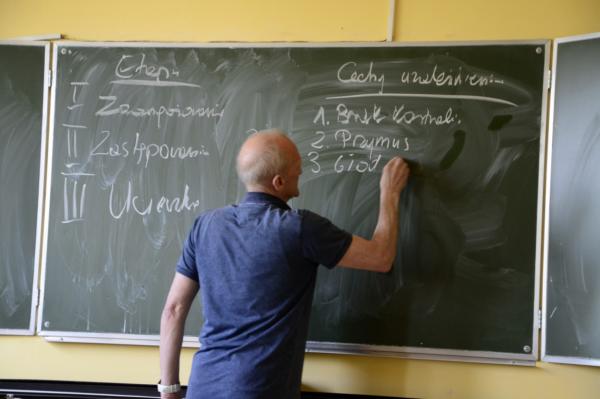 Etapy
I Zaangażowani
II Zastępowanie
III Ucieczka
Cechy uzależnienia
1. Brak Kontroli.
2. Przymus
3. Głód